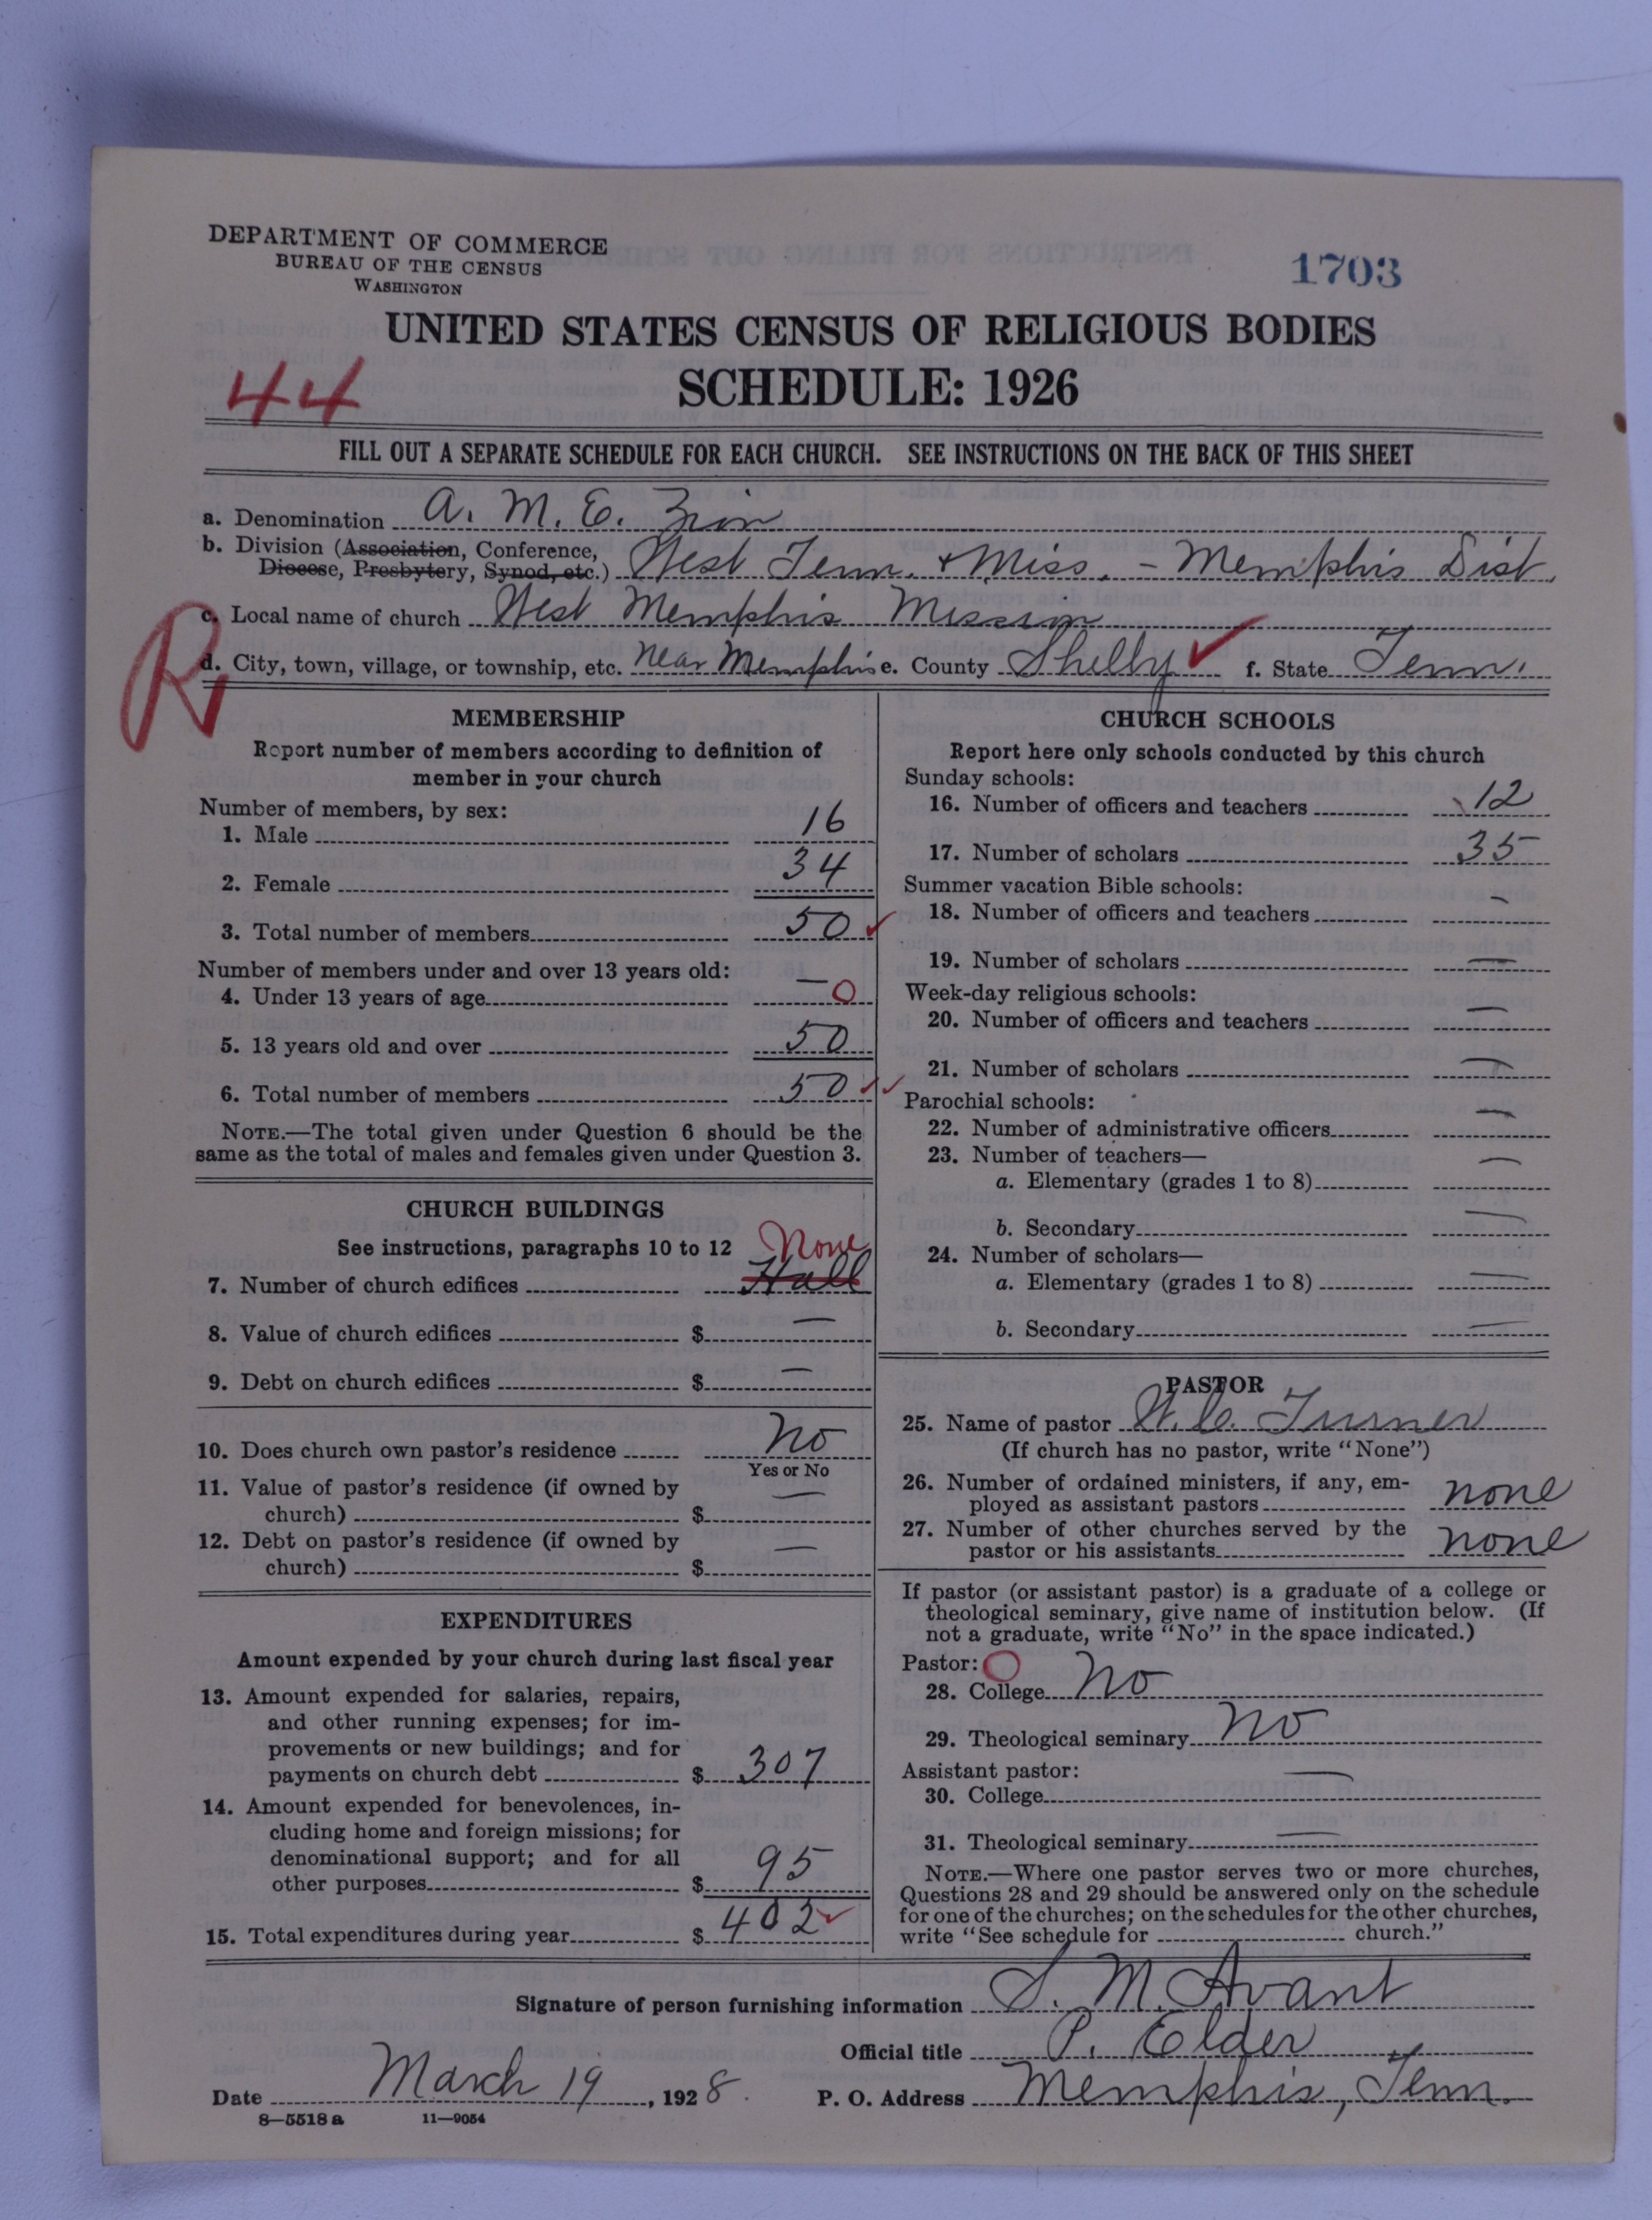 DEPARTMENT OF COMMERCE
BUREAU OF THE CENSUS
WASHINGTON
1703
UNITED STATES CENSUS OF RELIGIOUS BODIES
SCHEDULE: 1926
44
FILL OUT A SEPARATE SCHEDULE FOR EACH CHURCH. SEE INSTRUCTIONS ON THE BACK OF THIS SHEET
a. Denomination A. M. E. Zion
b. Division (Association, Conference, Diocese, Presbytery, Synod, etc.) West Tenn. & Miss. - Memphis Dist.
c. Local name of church West Memphis Mission
R
d. City, town, village, or township, etc. Near Memphis e. County Shelby ✓ f. State Tenn.
MEMBERSHIP
Report number of members according to definition of
member in your church
Number of members, by sex:
1. Male 16
2. Female 34
3. Total number of members 50 ✓
Number of members under and over 13 years old:
4. Under 13 years of age — 0
5. 13 years old and over 50
6. Total number of members 50 ✓✓
NOTE.—The total given under Question 6 should be the
same as the total of males and females given under Question 3.
CHURCH BUILDINGS
See instructions, paragraphs 10 to 12 None
7. Number of church edifices Hall
8. Value of church edifices $ —
9. Debt on church edifices $ —
10. Does church own pastor's residence No
Yes or No
11. Value of pastor's residence (if owned by
church) $ —
12. Debt on pastor's residence (if owned by
church) $ —
EXPENDITURES
Amount expended by your church during last fiscal year
13. Amount expended for salaries, repairs,
and other running expenses; for im-
provements or new buildings; and for
payments on church debt $ 307
14. Amount expended for benevolences, in-
cluding home and foreign missions; for
denominational support; and for all
other purposes $ 95
15. Total expenditures during year $ 402 ✓
CHURCH SCHOOLS
Report here only schools conducted by this church
Sunday schools:
16. Number of officers and teachers 12
17. Number of scholars 35
Summer vacation Bible schools:
18. Number of officers and teachers —
19. Number of scholars —
Week-day religious schools:
20. Number of officers and teachers —
21. Number of scholars —
Parochial schools:
22. Number of administrative officers —
23. Number of teachers—
a. Elementary (grades 1 to 8) —
b. Secondary —
24. Number of scholars—
a. Elementary (grades 1 to 8) —
b. Secondary —
PASTOR
25. Name of pastor W. C. Turner
(If church has no pastor, write "None")
26. Number of ordained ministers, if any, em-
ployed as assistant pastors none
27. Number of other churches served by the
pastor or his assistants none
If pastor (or assistant pastor) is a graduate of a college or
theological seminary, give name of institution below. (If
not a graduate, write "No" in the space indicated.)
Pastor: O
28. College No
29. Theological seminary No
Assistant pastor:
30. College —
31. Theological seminary —
NOTE.—Where one pastor serves two or more churches,
Questions 28 and 29 should be answered only on the schedule
for one of the churches; on the schedules for the other churches,
write "See schedule for church."
Signature of person furnishing information S. M. Avant
Official title P. Elder
Date March 19, 1928. P. O. Address Memphis, Tenn.
8—5518 a 11—9054